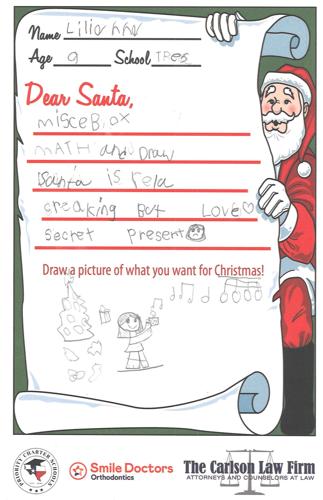 Name Liliahna
Age 9 School TPCS
Dear Santa,
misceBox
mATH and Draw
Santa is rela
creaking But Love
secret Present
Draw a picture of what you want for Christmas!
PRIORITY CHARTER SCHOOLS
Smile Doctors
Orthodontics
The Carlson Law Firm
ATTORNEYS AND COUNSELORS AT LAW